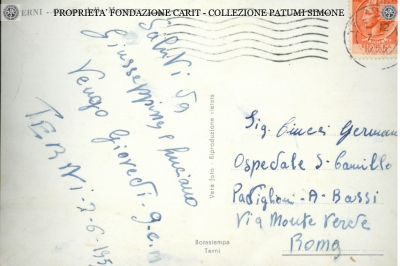 PROPRIETA' FONDAZIONE CARIT - COLLEZIONE PATUMI SIMONE
TERNI -
Saluti da
Giuseppina e Luciano
Vengo Giovedi
TERNI - 2-6-195
Vera foto - Riproduzione vietata
Rotostampa
Terni
Sig. Cincci German
Ospedale S. Camillo
Padiglioni - A - Bassi
Via Monte Verde
Roma